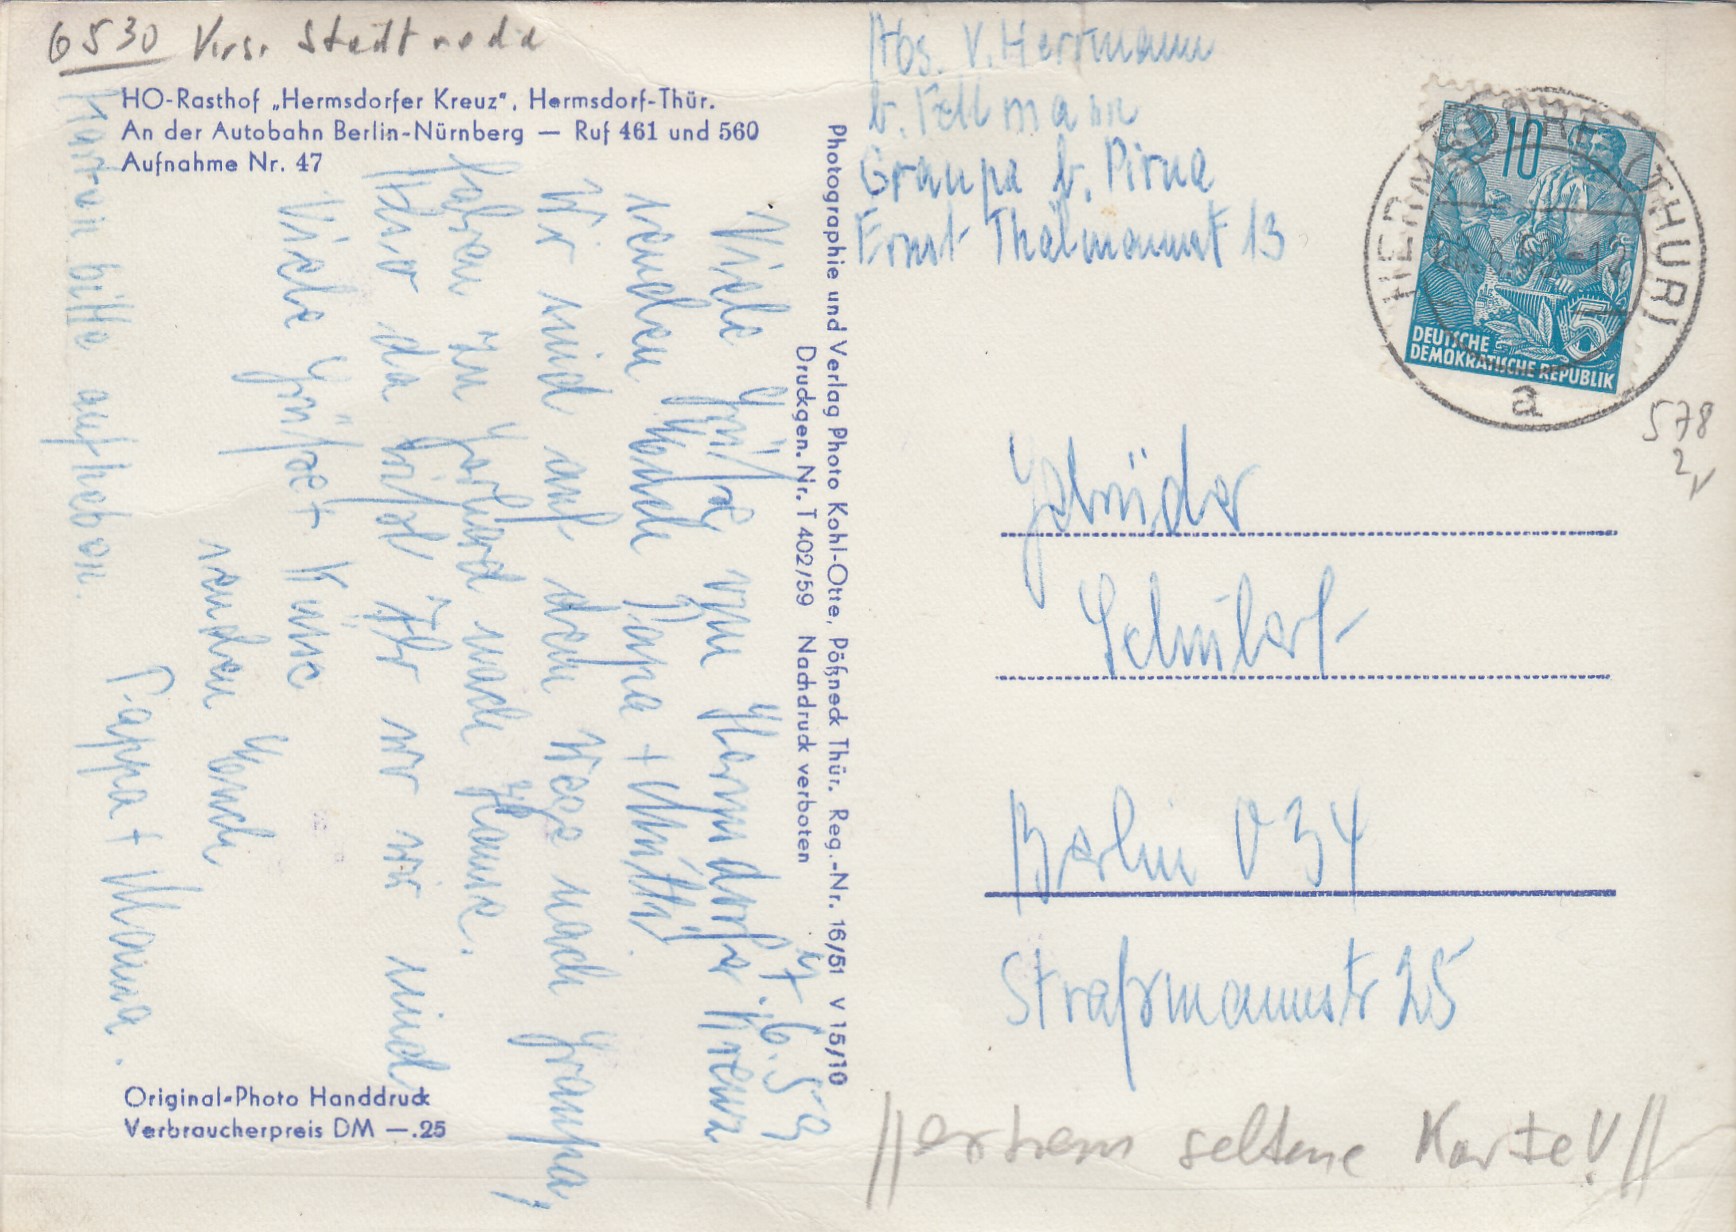 6530 Krs. Stadtroda
HO-Rasthof „Hermsdorfer Kreuz“, Hermsdorf-Thür.
An der Autobahn Berlin-Nürnberg — Ruf 461 und 560
Aufnahme Nr. 47
17.6.59
Viele Grüße vom Hermsdorfer Kreuz
senden Euch Papa + Mutti
Wir sind auf dem Wege nach Graupa,
fahren zu Gerhard nach Hause.
Also da wißt Ihr wo wir sind
Viele Grüße + Küsse
senden Euch
Pappa + Mama.
Karten bitte aufheben.
Original-Photo Handdruck
Verbraucherpreis DM —.25
Photographie und Verlag Photo Kohl-Otte, Pößneck Thür. Reg.-Nr. 16/51 V 15/10
Druckgen. Nr. T 402/59 Nachdruck verboten
Abs. V. Herrmann
b. Fellmann
Graupa b. Pirna
Ernst Thälmannst 13
10
DEUTSCHE
DEMOKRATISCHE REPUBLIK
5
HERMSDORF (THÜR)
a
578
2
Gebrüder
Schubert
Berlin O 34
Straßmannstr 25
//extrem seltene Karte!//